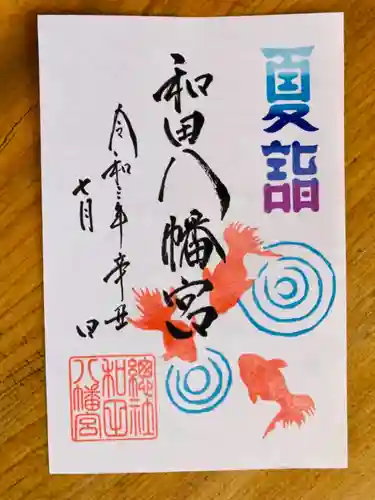 夏詣
和田八幡宮
令和三年辛丑
七月 日
總社
和田
八幡宮